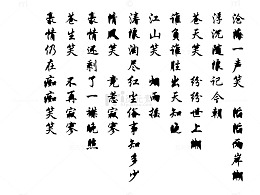 沧海一声笑 滔滔两岸潮
浮沉随浪记今朝
苍天笑 纷纷世上潮
谁负谁胜出天知晓
江山笑 烟雨遥
涛浪淘尽红尘俗事知多少
清风笑 竟惹寂寥
豪情还剩了一襟晚照
苍生笑 不再寂寥
豪情仍在痴痴笑笑